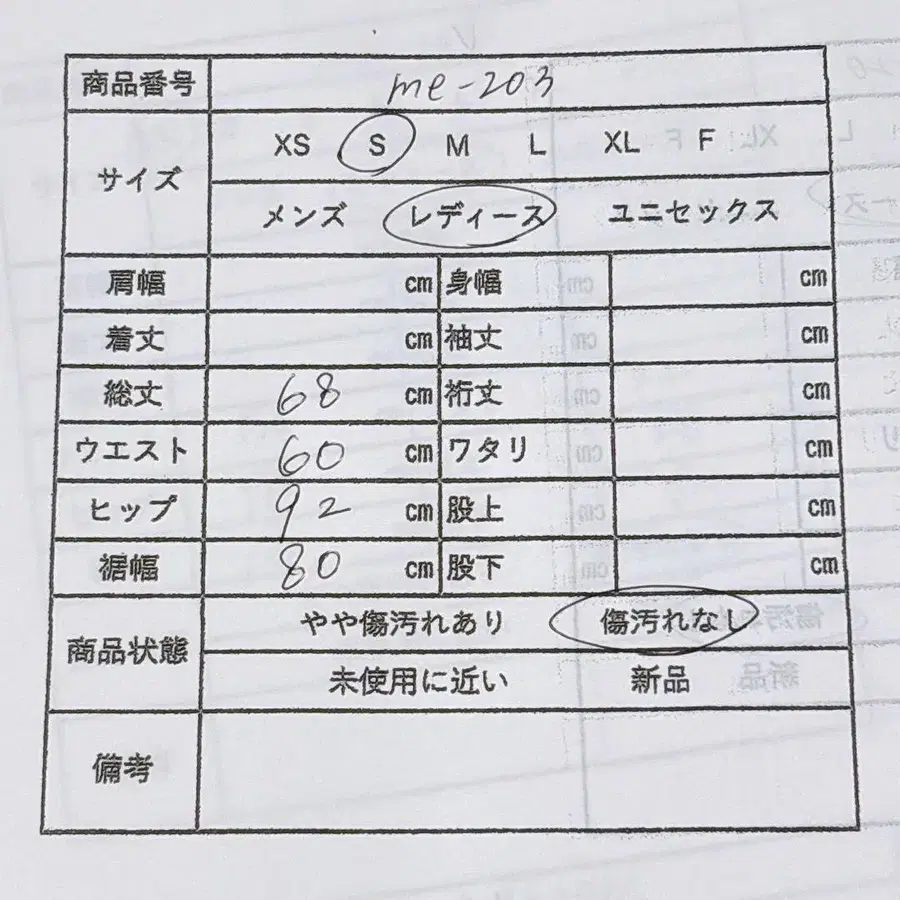 商品番号 me-203
サイズ XS S M L XL F
メンズ レディース ユニセックス
肩幅 cm 身幅 cm
着丈 cm 袖丈 cm
総丈 68 cm 裄丈 cm
ウエスト 60 cm ワタリ cm
ヒップ 92 cm 股上 cm
裾幅 80 cm 股下 cm
商品状態 やや傷汚れあり 傷汚れなし
未使用に近い 新品
備考